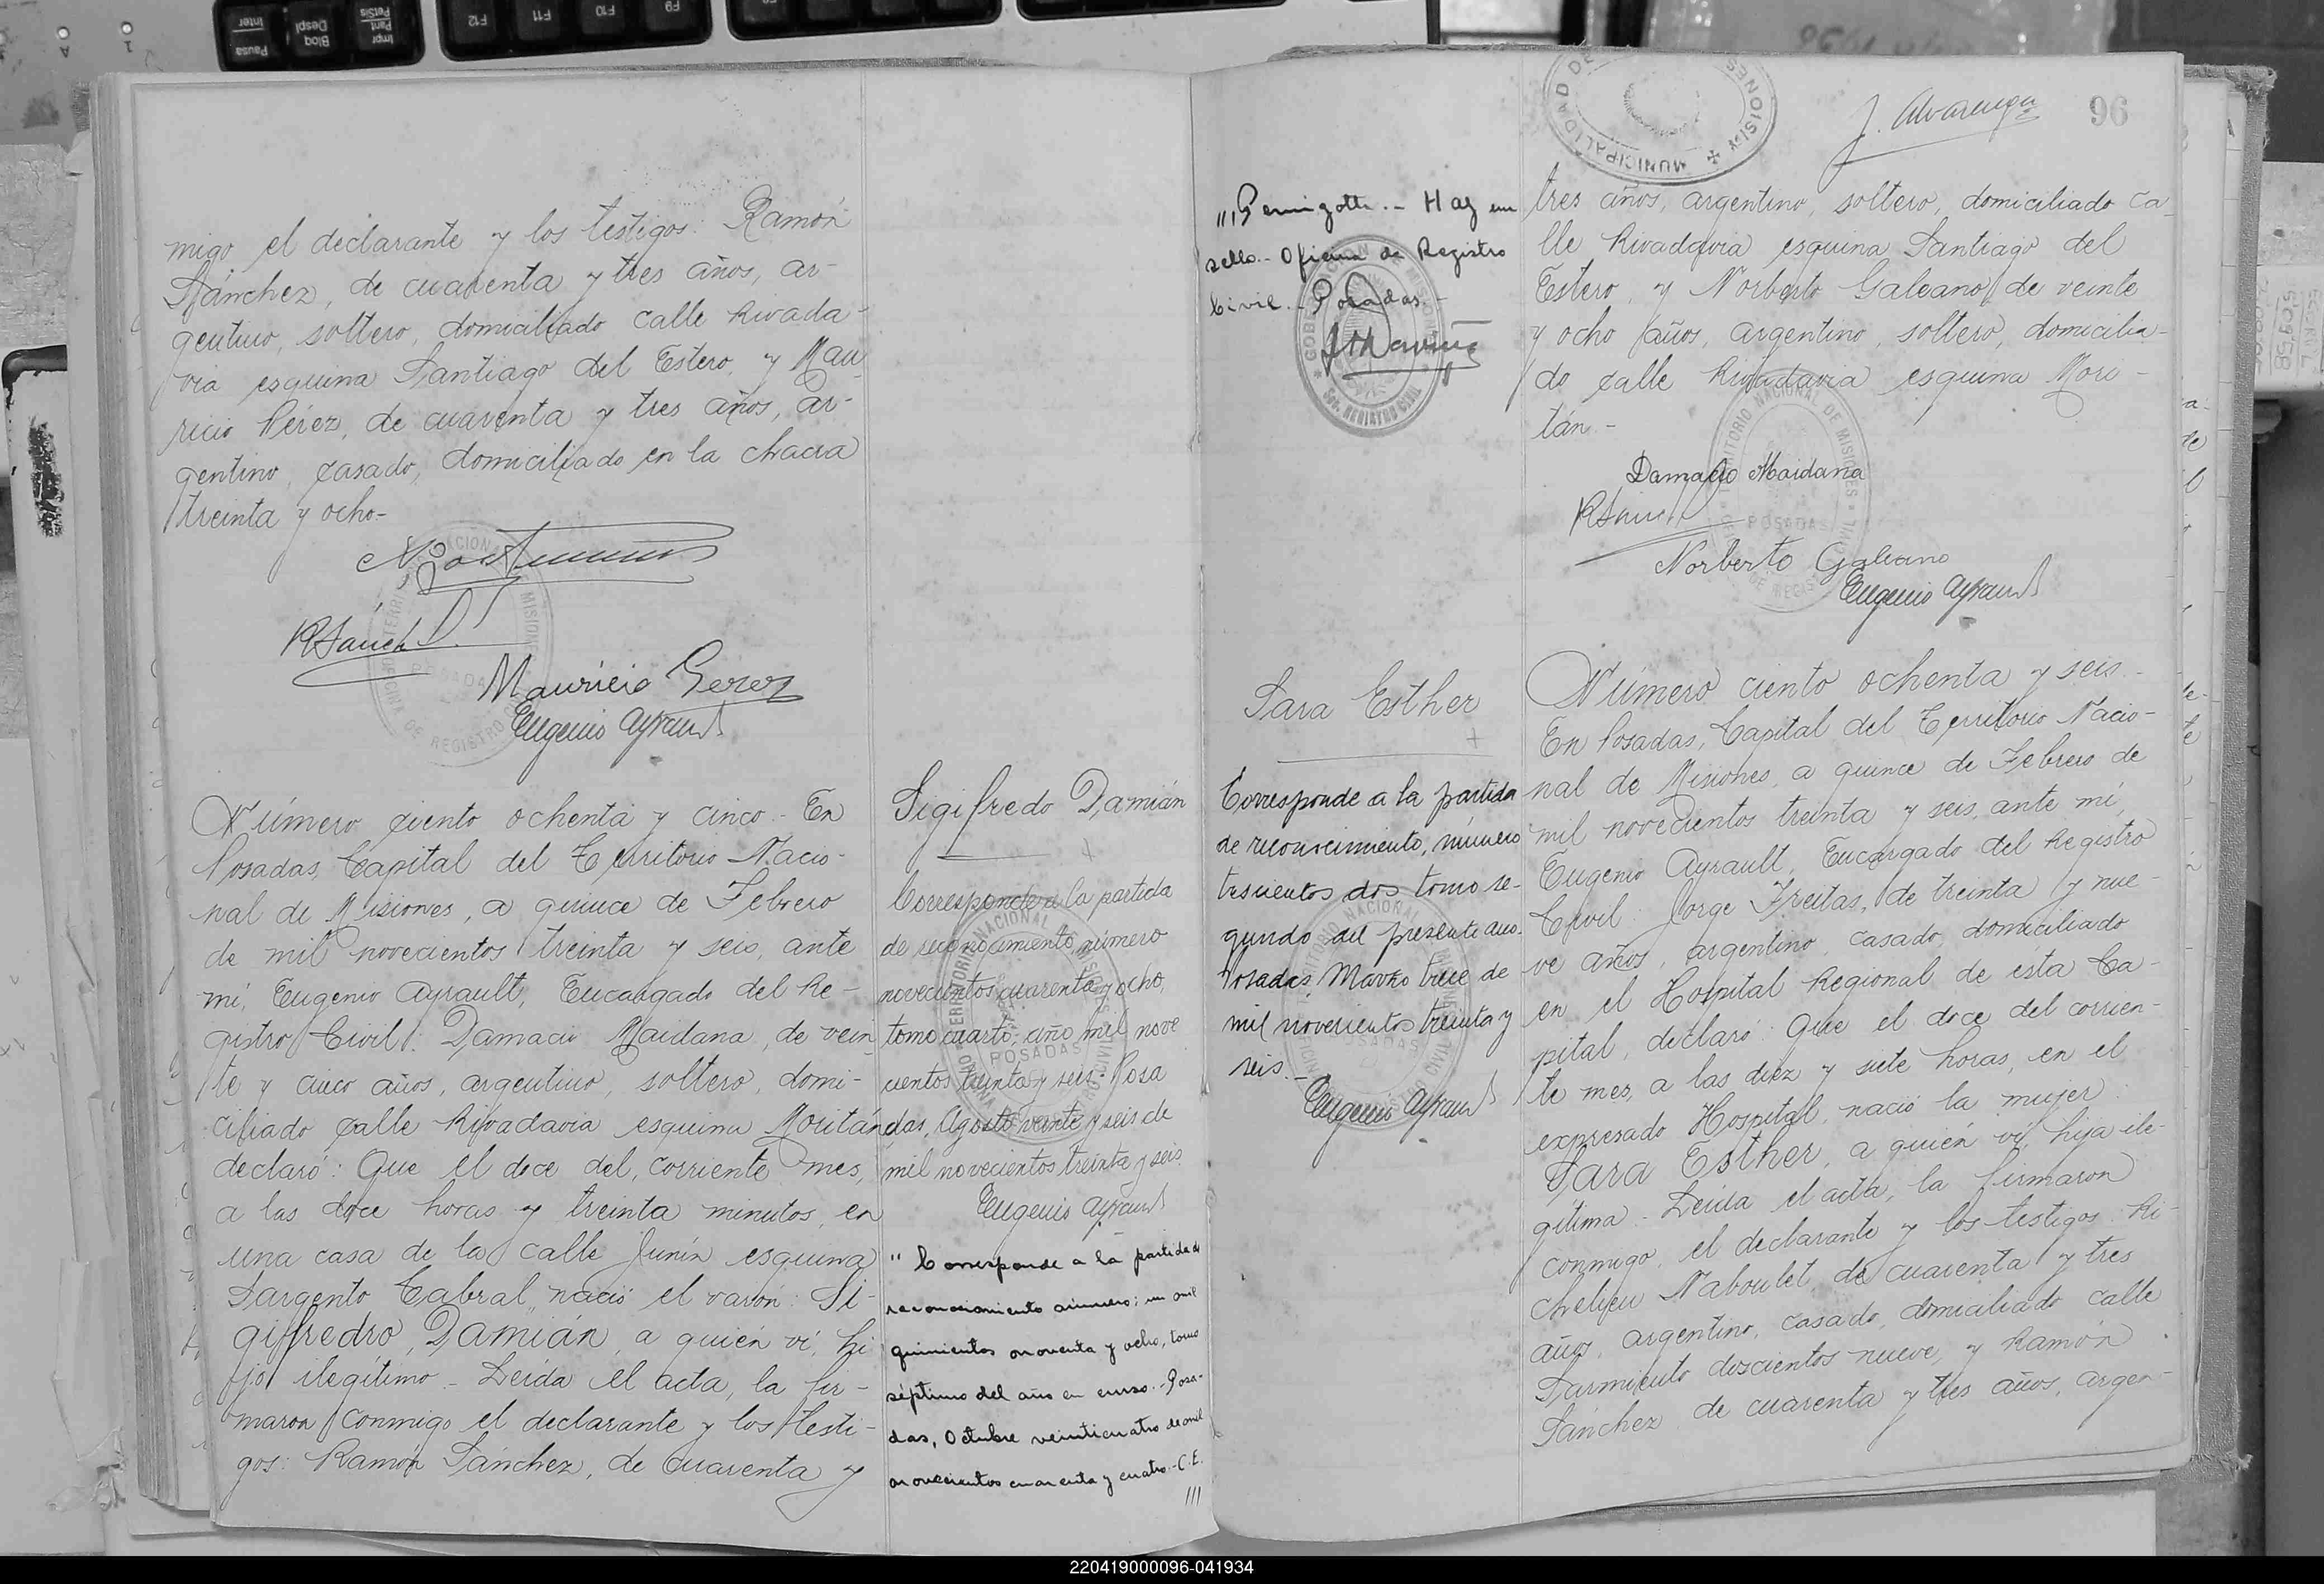 migo el declarante y los testigos: Ramón
Sánchez, de cuarenta y tres años, ar-
gentino, soltero, domiciliado calle Rivada-
via esquina Santiago del Estero, y Mau-
ricio Pérez, de cuarenta y tres años, ar-
gentino, casado, domiciliado en la chacra
treinta y ocho.-
RSanch
Mauricio Perez
Eugenio Ayrault
Número ciento ochenta y cinco.- En
Posadas, Capital del Territorio Nacio-
nal de Misiones, a quince de Febrero
de mil novecientos treinta y seis, ante
mí, Eugenio Ayrault, Encargado del Re-
gistro Civil: Damacio Maidana, de vein-
te y cinco años, argentino, soltero, domi-
ciliado calle Rivadavia esquina Moritán
declaró: Que el doce del corriente mes,
a las doce horas y treinta minutos, en
una casa de la calle Junín esquina
Sargento Cabral, nació el varón: Si-
gifredro Damián, a quién ví, hi-
jo ilegítimo.- Leída el acta, la fir-
maron conmigo el declarante y los testi-
gos: Ramón Sánchez, de cuarenta y
Sigifredo Damián
Corresponde a la partida
de reconocimiento, número
novecientos cuarenta y ocho,
tomo cuarto, año mil nove
cientos treinta y seis. Posa
das, Agosto veinte y seis de
mil novecientos treinta y seis.
Eugenio Ayrault
"Corresponde a la partida de
reconocimiento número: un mil
quinientos noventa y ocho, tomo
séptimo del año en curso.- Posa-
das, Octubre veinticuatro de mil
novecientos cuarenta y cuatro.- C.E.
///
///Pernigotti.- Hay un
sello.- Oficina de Registro
Civil.- Posadas.-
GOBERNACION DE MISIONES
Sec. REGISTRO CIVIL
MUNICIPALIDAD DE
MISIONES
J. Alvarenga
96
tres años, argentino, soltero, domiciliado ca-
lle Rivadavia esquina Santiago del
Estero, y Norberto Galeano, de veinte
y ocho años, argentino, soltero, domicilia-
do calle Rivadavia esquina Mori-
tán.-
Damacio Maidana
RSanch
Norberto Galeano
Eugenio Ayrault
Sara Esther
Corresponde a la partida
de reconocimiento, número
trescientos dos tomo se-
gundo del presente año.
Posadas, Marzo trece de
mil novecientos treinta y
seis.-
Eugenio Ayrault
Número ciento ochenta y seis.-
En Posadas, Capital del Territorio Nacio-
nal de Misiones, a quince de Febrero de
mil novecientos treinta y seis, ante mí,
Eugenio Ayrault, Encargado del Registro
Civil: Jorge Freitas, de treinta y nue-
ve años, argentino, casado, domiciliado
en el Hospital Regional de ésta Ca-
pital, declaró: Que el doce del corrien-
te mes, a las diez y siete horas, en el
expresado Hospital, nació la mujer
Sara Esther, a quién ví, hija ile-
gítima.- Leída el acta, la firmaron
conmigo, el declarante y los testigos: Ri-
chelieu Naboulet, de cuarenta y tres
años, argentino, casado, domiciliado calle
Sarmiento doscientos nueve, y Ramón
Sánchez, de cuarenta y tres años, argen-
220419000096-041934